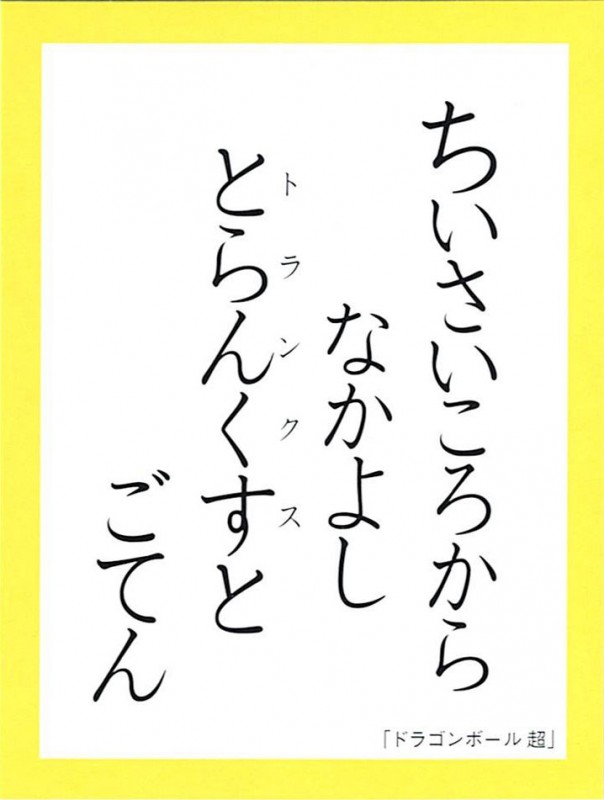 ちいさいころから
なかよし
とらんくすと
トランクス
ごてん
「ドラゴンボール 超」